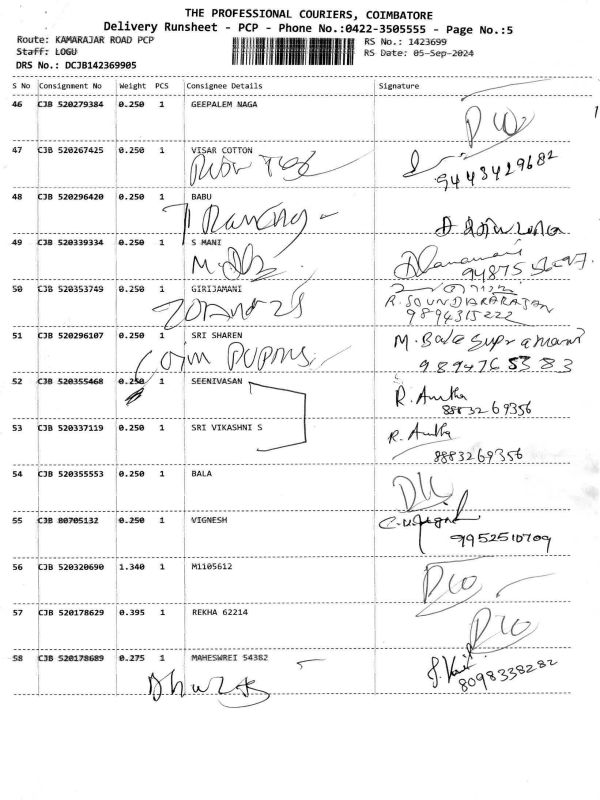 THE PROFESSIONAL COURIERS, COIMBATORE
Delivery Runsheet - PCP - Phone No.:0422-3505555 - Page No.:5
Route: KAMARAJAR ROAD PCP RS No.: 1423699
Staff: LOGU RS Date: 05-Sep-2024
DRS No.: DCJB142369905
S No Consignment No Weight PCS Consignee Details Signature
46 CJB 520279384 0.250 1 GEEPALEM NAGA
47 CJB 520267425 0.250 1 VISAR COTTON
9443429682
48 CJB 520296420 0.250 1 BABU
49 CJB 520339334 0.250 1 S MANI
50 CJB 520353749 0.250 1 GIRIJAMANI
R. SOUNDHARARAJAN
9894315222
51 CJB 520296107 0.250 1 SRI SHAREN
M. Bala Supramani
9894765383
52 CJB 520355468 0.250 1 SEENIVASAN
R. Anitha
8883269356
53 CJB 520337119 0.250 1 SRI VIKASHNI S
R. Anitha
8883269356
54 CJB 520355553 0.250 1 BALA
55 CJB 80705132 0.250 1 VIGNESH
9952510709
56 CJB 520320690 1.340 1 M1105612
57 CJB 520178629 0.395 1 REKHA 62214
58 CJB 520178689 0.275 1 MAHESWREI 54382
8098338282